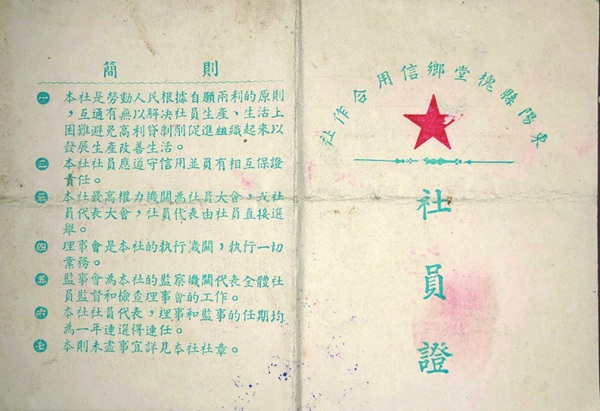 東陽縣槐堂鄉信用合作社
社員證
簡則
一 本社是勞動人民根據自願兩利的原則
，互通有無以解決社員生產、生活上
困難避免高利貸剝削促進組織起來以
發展生產改善生活。
二 本社社員應遵守信用並員有相互保證
責任。
三 本社最高權力機關為社員大會，或社
員代表大會，社員代表由社員直接選
舉。
四 理事會是本社的執行機關，執行一切
業務。
五 監事會為本社的監察機關代表全體社
員監督和檢查理事會的工作。
六 本社社員代表，理事和監事的任期均
為一年連選得連任。
七 本則未盡事宜詳見本社社章。